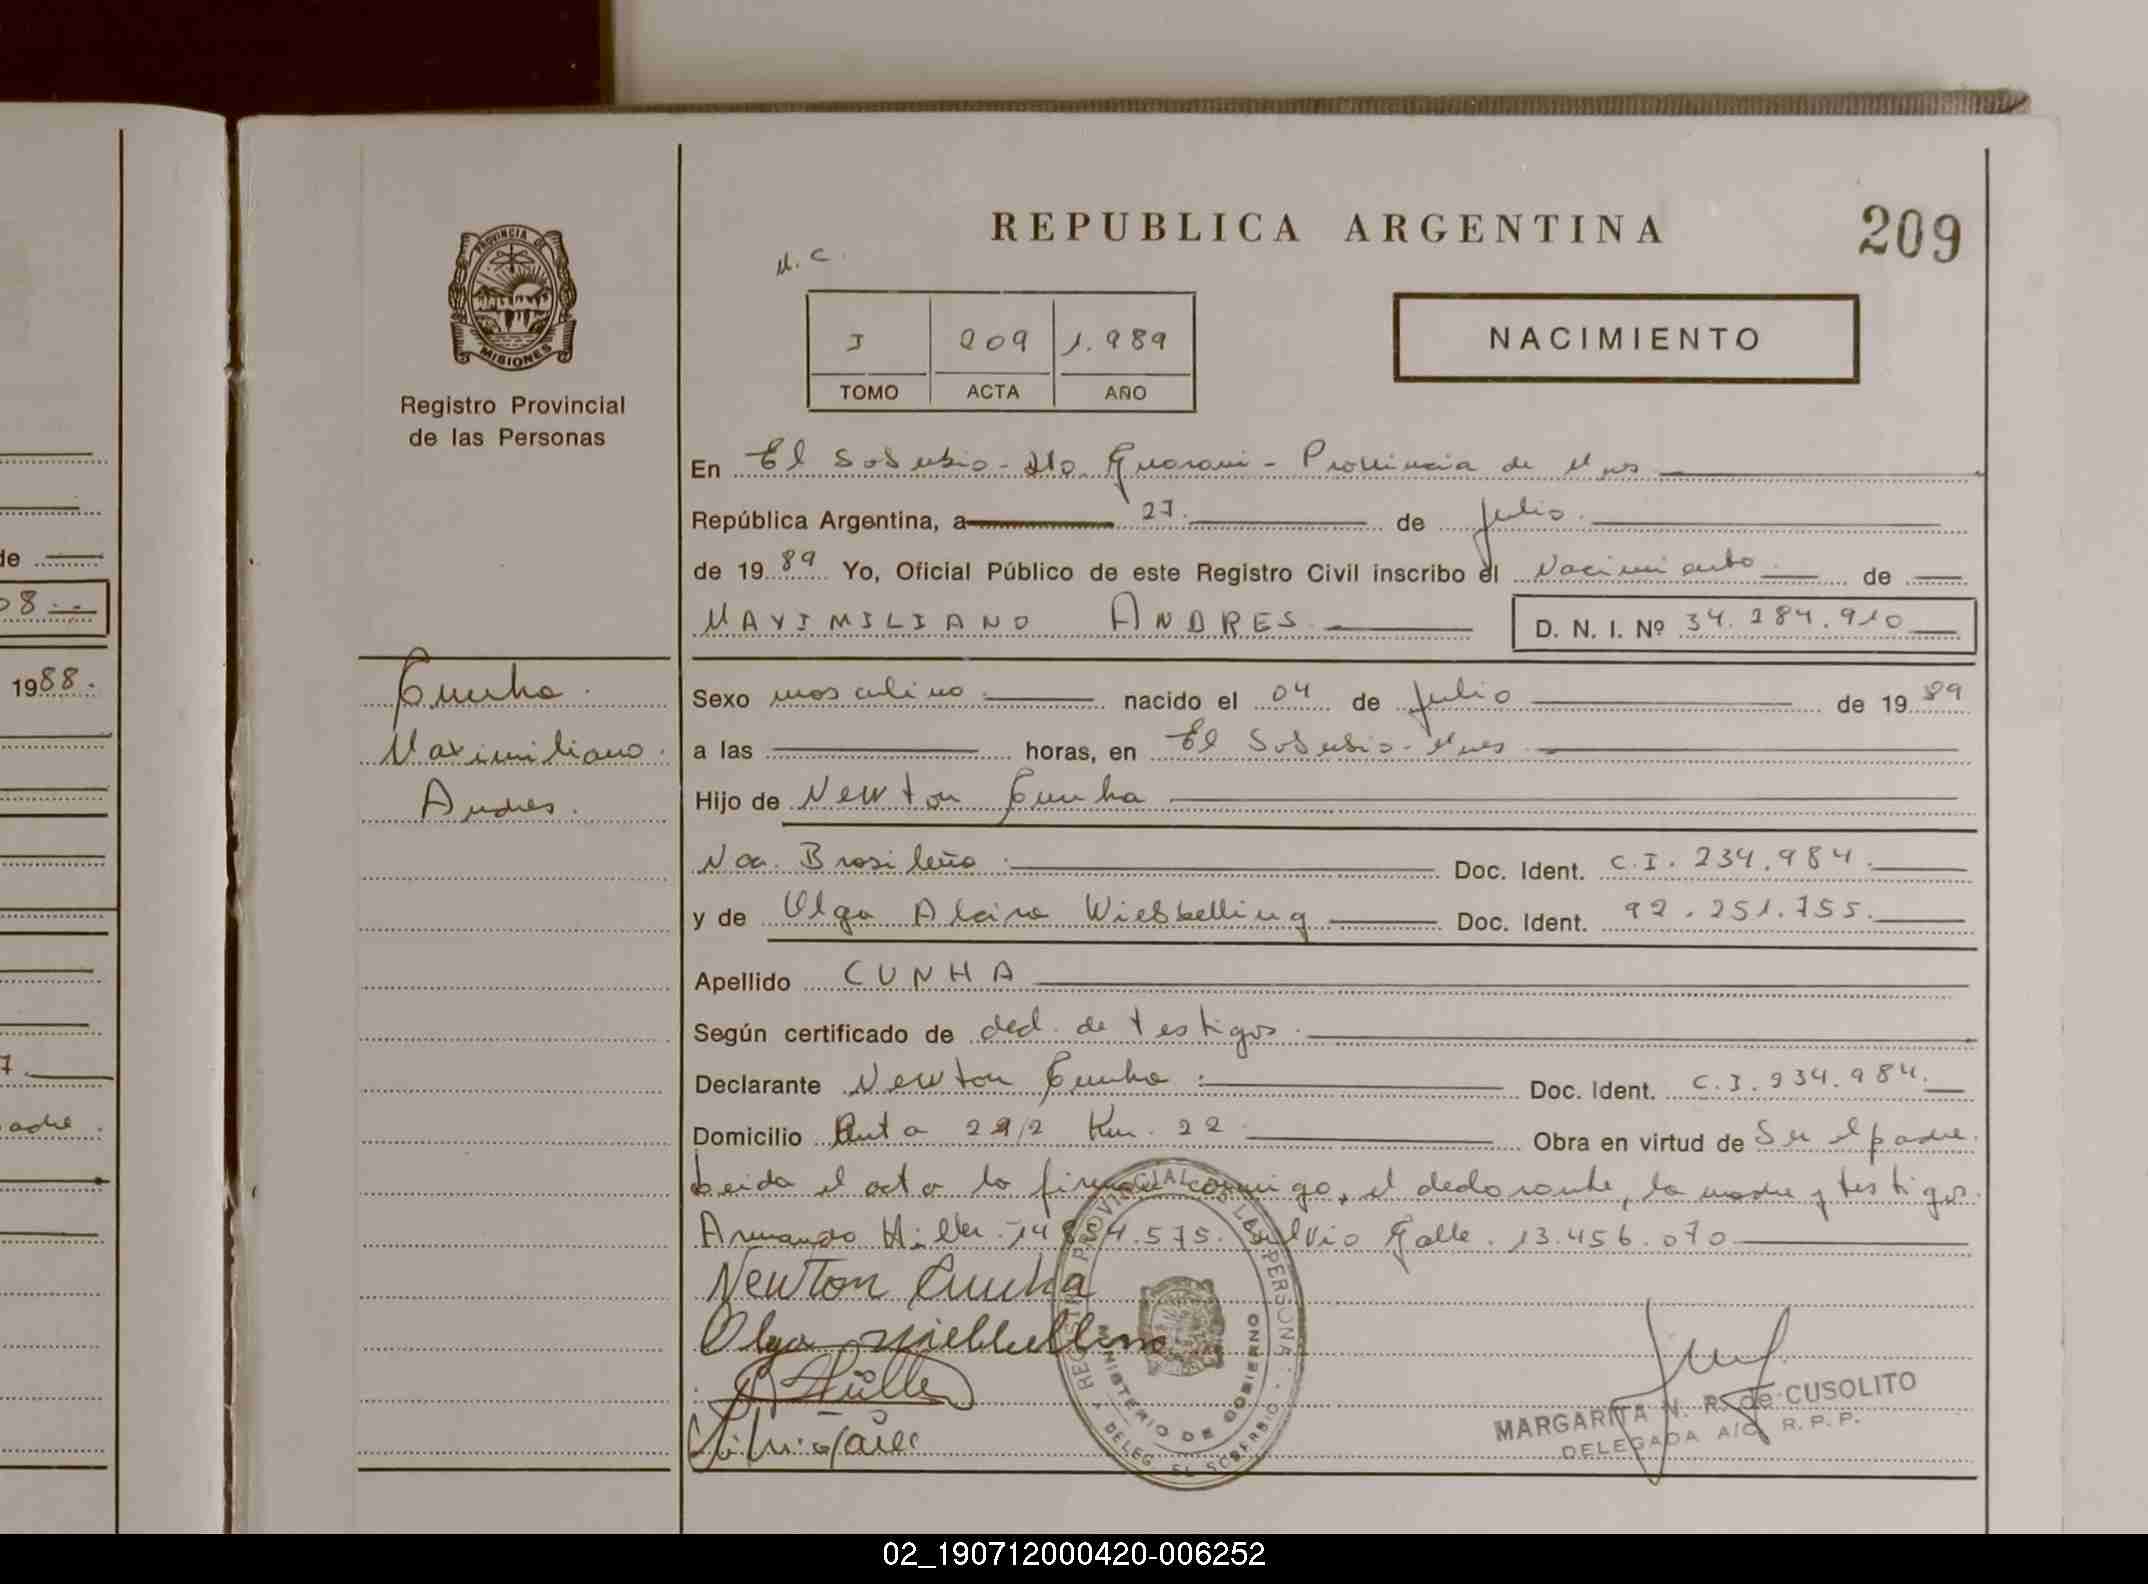 REPUBLICA ARGENTINA
209
PROVINCIA DE
MISIONES
Registro Provincial
de las Personas
N. C.
I 209 1.989
TOMO ACTA AÑO
NACIMIENTO
En El Soberbio - Dto. Guarani - Provincia de Mnes
República Argentina, a 27. de Julio.
de 19 89 Yo, Oficial Público de este Registro Civil inscribo el Nacimiento de
MAXIMILIANO ANDRES
D. N. I. Nº 34.284.910
Cunha.
Maximiliano.
Andres.
Sexo masculino. nacido el 04 de Julio de 19 89
a las horas, en El Soberbio - Mnes
Hijo de Newton Cunha
Nac. Brasileño. Doc. Ident. C.I. 234.984.
y de Olga Alcira Wiebbelling Doc. Ident. 92.251.755.
Apellido CUNHA
Según certificado de decl. de testigos.
Declarante Newton Cunha. Doc. Ident. C.I. 934.984.
Domicilio Ruta 2 Km. 22 Obra en virtud de Ser el padre.
Leida el acta la firman conmigo, el declarante, la madre y testigos.
Armando 575. Silvio Galle. 13.456.070
Newton Cunha
Olga
REGISTRO PROVINCIAL DE LAS PERSONAS
MINISTERIO DE GOBIERNO
DELEG. EL SOBERBIO
MARGARITA N. R. de CUSOLITO
DELEGADA A/C. R. P. P.
de
08
1988.
7
padre.
02_190712000420-006252